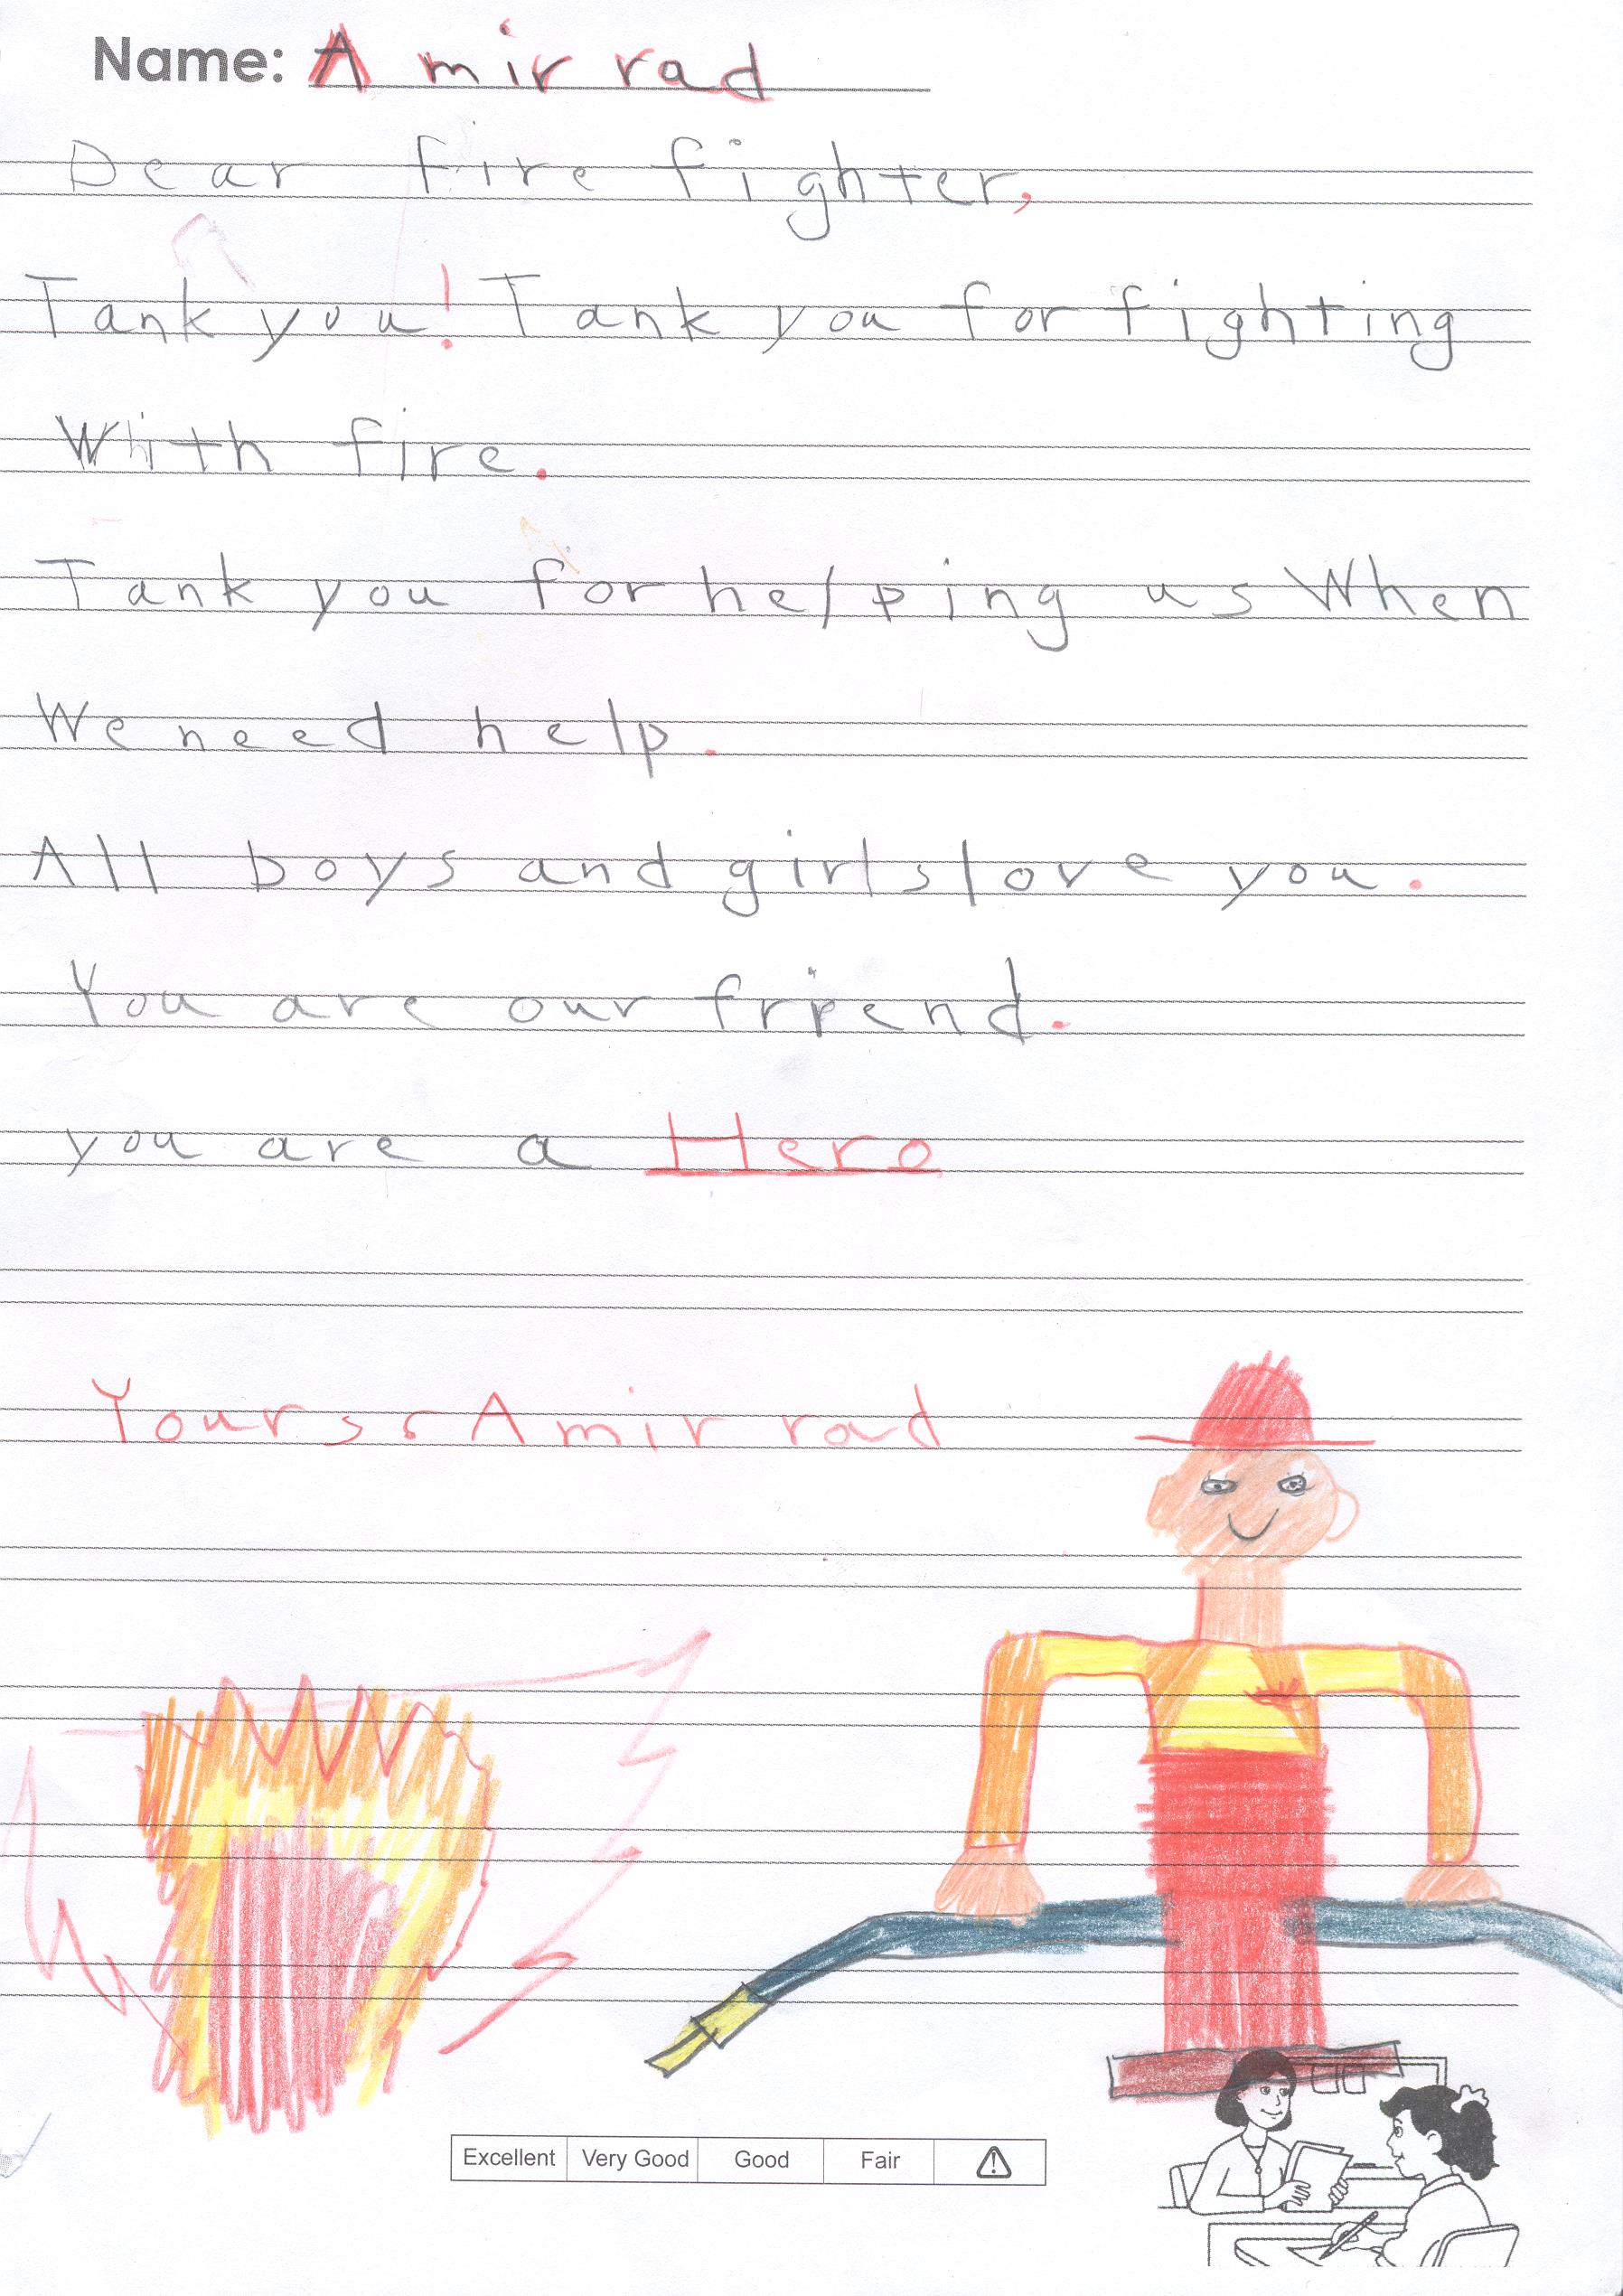 Name: Amir rad
Dear fire fighter,
Tank you! Tank you for fighting
With fire.
Tank you for helping us When
We need help.
All boys and girls love you.
You are our friend.
you are a Hero
Yours, Amir rad
Excellent Very Good Good Fair